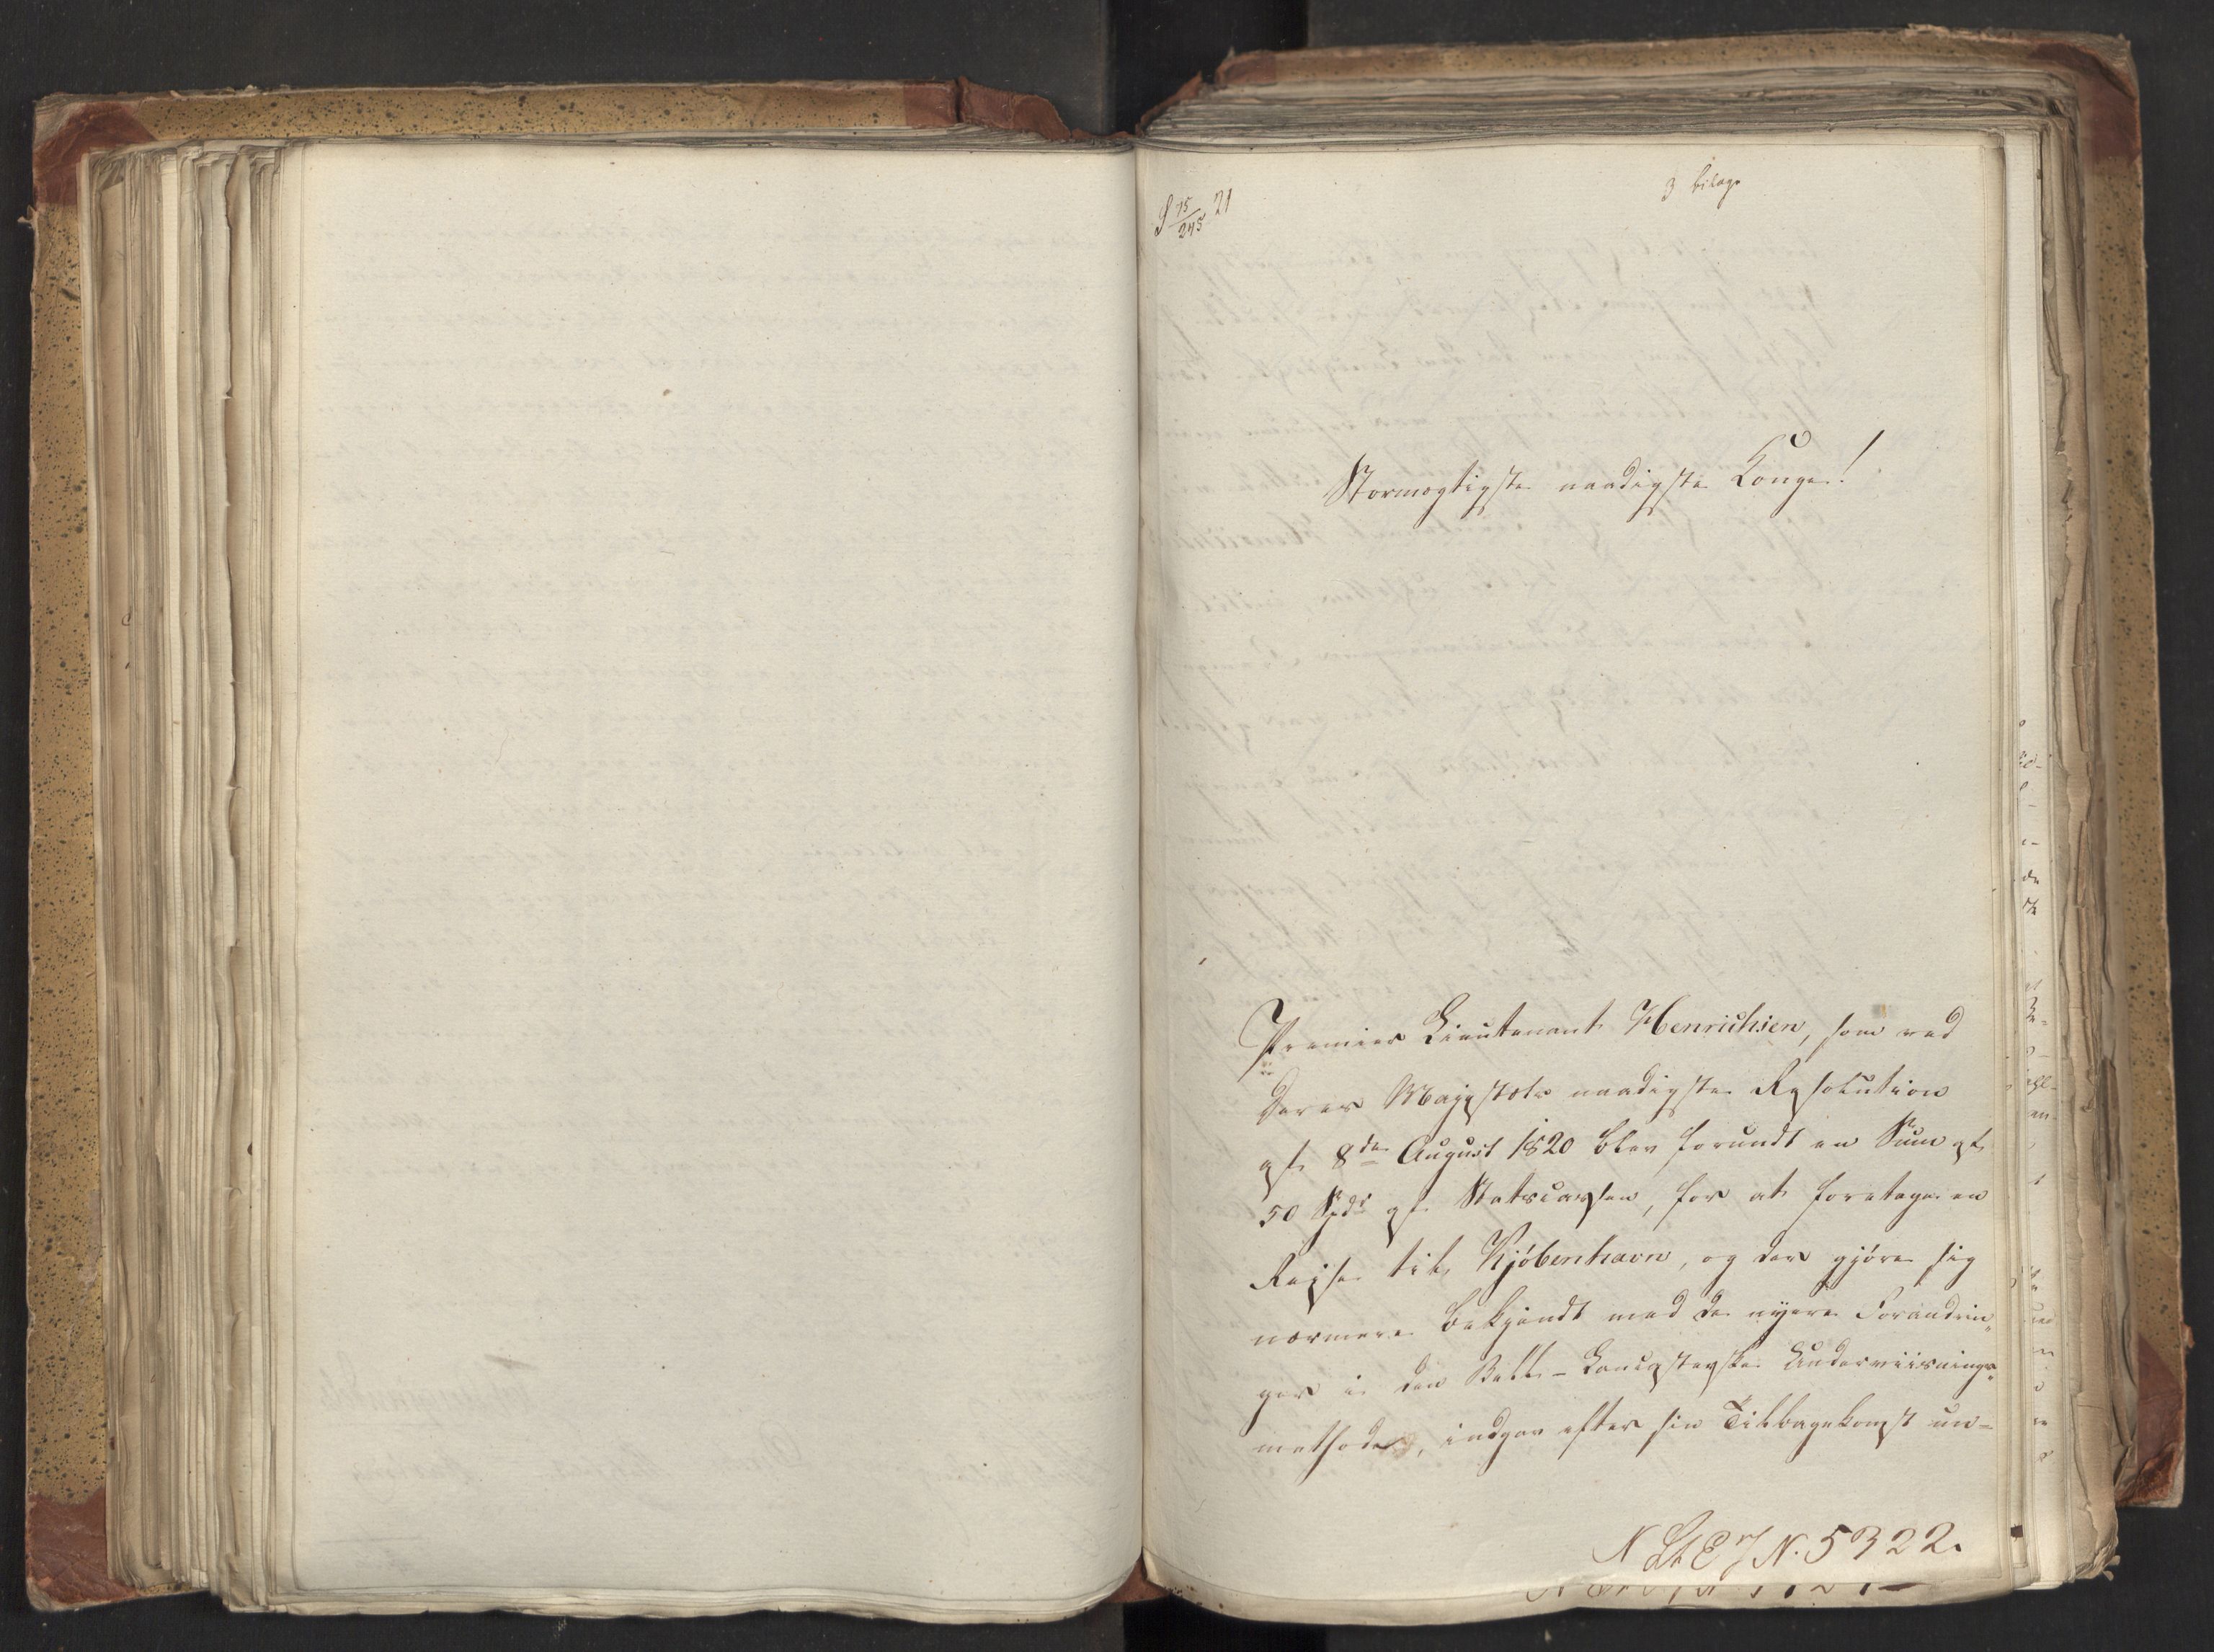 S 75/245 21
3 bilage
Stormægtigste naadigste Konge!
Premier Lieutenant Henrichsen, som ved
Deres Majestæts naadigste Resolution
af 8de August 1820 blev forundt en Sum af
50 Spdr af Statscassen, for at foretage en
Rejse til Kjöbenhavn, og der gjöre sig
nærmere bekjendt med de nyere Forandrin„
ger i den Bell-Lancasterske Underviisnings„
methode, indgav efter sin Tilbagekomst un-
N St E J N. 5322.